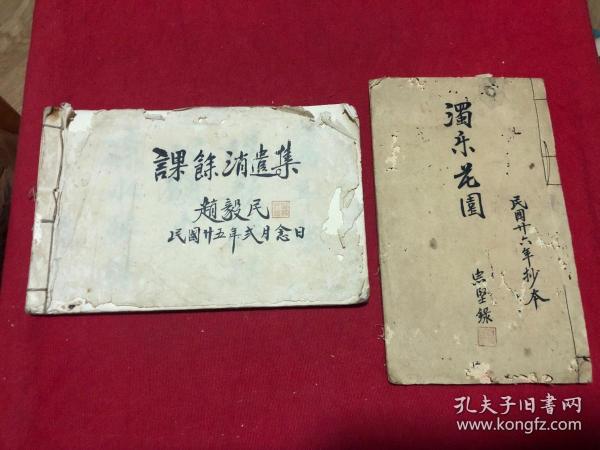 課餘消遣集
趙毅民
民國廿五年弍月念日
濁乐花園
民國廿六年抄本
堅錄
孔夫子旧书网
www.kongfz.com